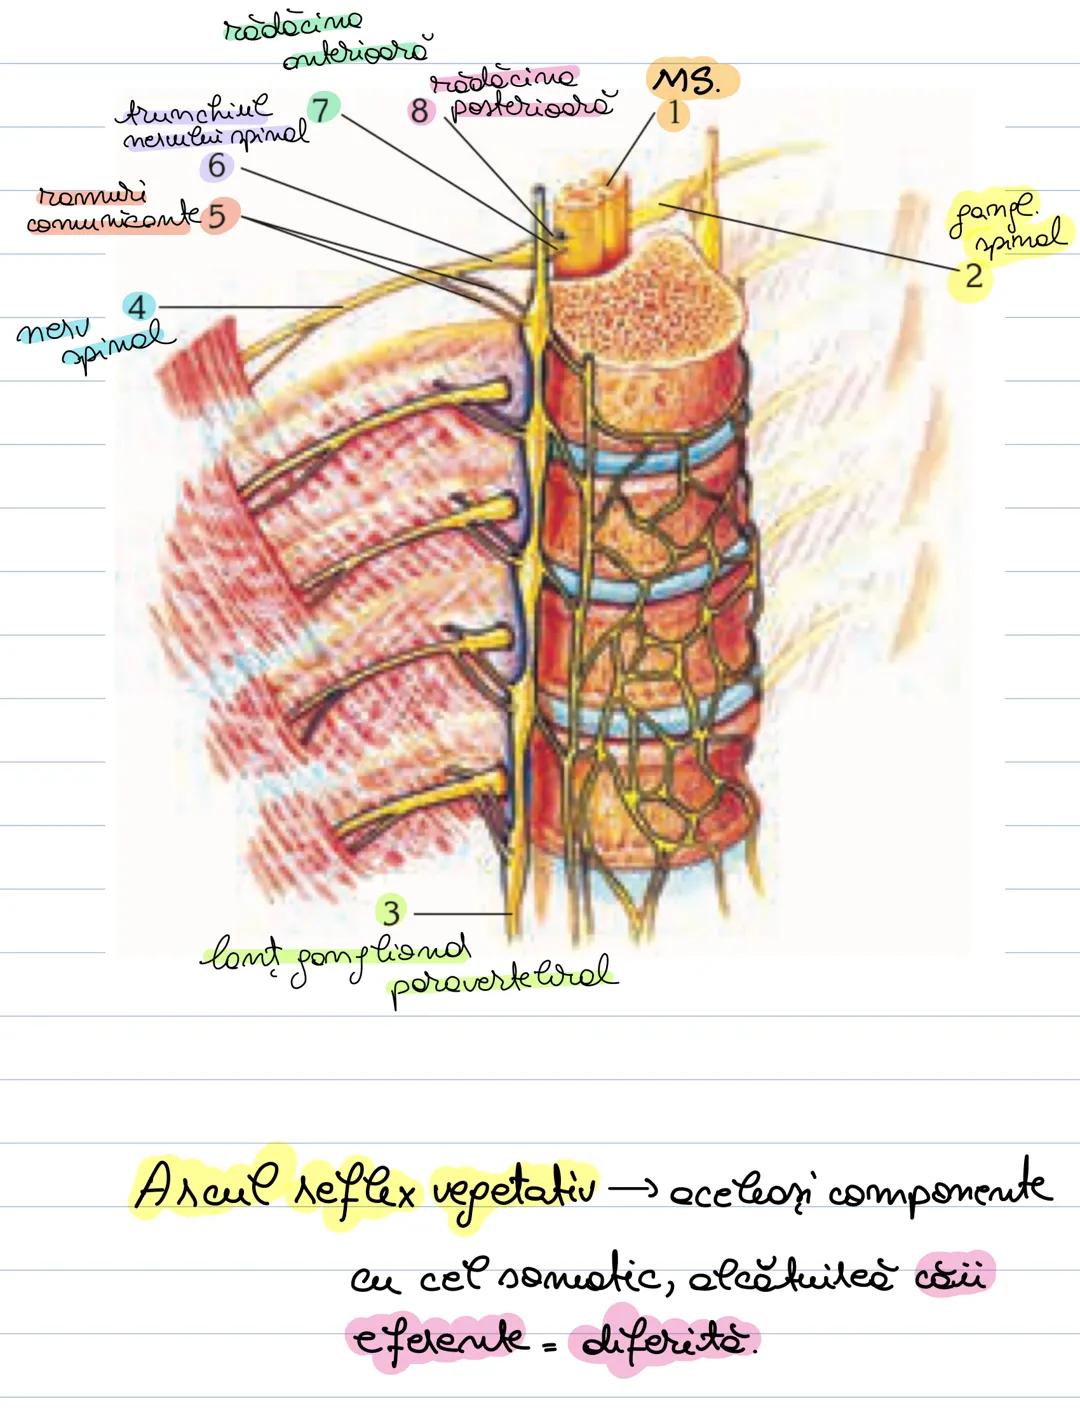 rădăcina
anterioară
7
rădăcina
posterioară
8
MS.
1
trunchiul
nervului spinal
6
ramuri
comunicante
5
gangl.
spinal
2
4
nerv
spinal
3
lanț ganglionar
paravertebral
Arcul reflex vegetativ → aceleași componente
cu cel somatic, alcătuirea căii
eferente = diferită.